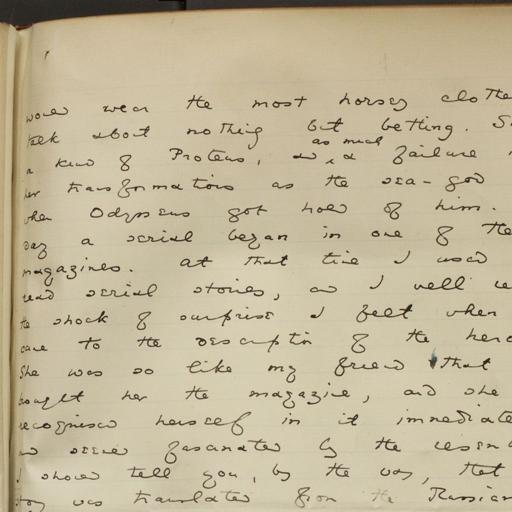 would wear the most horsey clothe
talk about nothing but betting. S
a kind of Proteus, and as much a failure
her transformations as the sea-god
when Odysseus got hold of him.
day a serial began in one of the
magazines. At that time I used
read serial stories, and I well re
the shock of surprise I felt when
came to the description of the hero
She was so like my friend that
bought her the magazine, and she
recognised herself in it immediate
and seemed fascinated by the resem
I should tell you, by the way, that
story was translated from the Russian